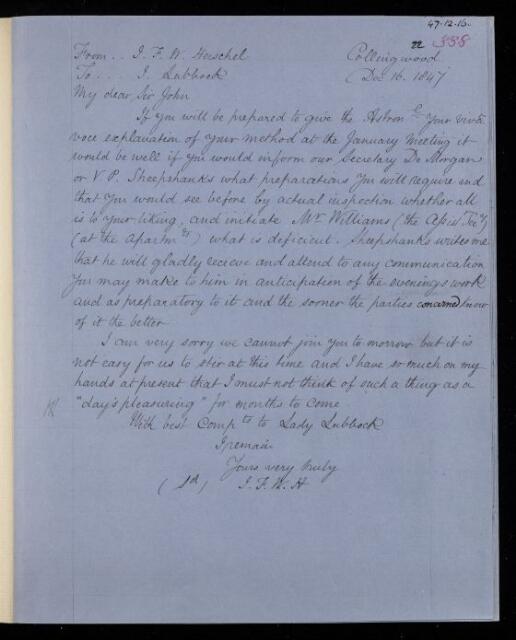 47.12.16.
22 358
From .. J. F. W. Herschel Collingwood
To .... J. Lubbock (Dec 16. 1847
My dear Sir John
If you will be prepared to give the Astron^l your vivâ
voce explanation of your method at the January Meeting it
would be well if you would inform our Secretary De Morgan
or V. P. Sheepshanks what preparations you will require and
that you would see before by actual inspection whether all
is to your liking, and initiate Mr. Williams (the Assis^t Sec^y)
(at the Apartm^ts) what is deficient. Sheepshanks writes me
that he will gladly recieve and attend to any communication
you may make to him in anticipation of the evenings work
and as preparatory to it and the sooner the parties concerned know
of it the better
I am very sorry we cannot join you to morrow but it is
not easy for us to stir at this time and I have so much on my
hands at present that I must not think of such a thing as a
"day's pleasuring" for months to come.
With best Comp^ts to Lady Lubbock
I remain
Yours very truly
(Sd) J. F. W. H